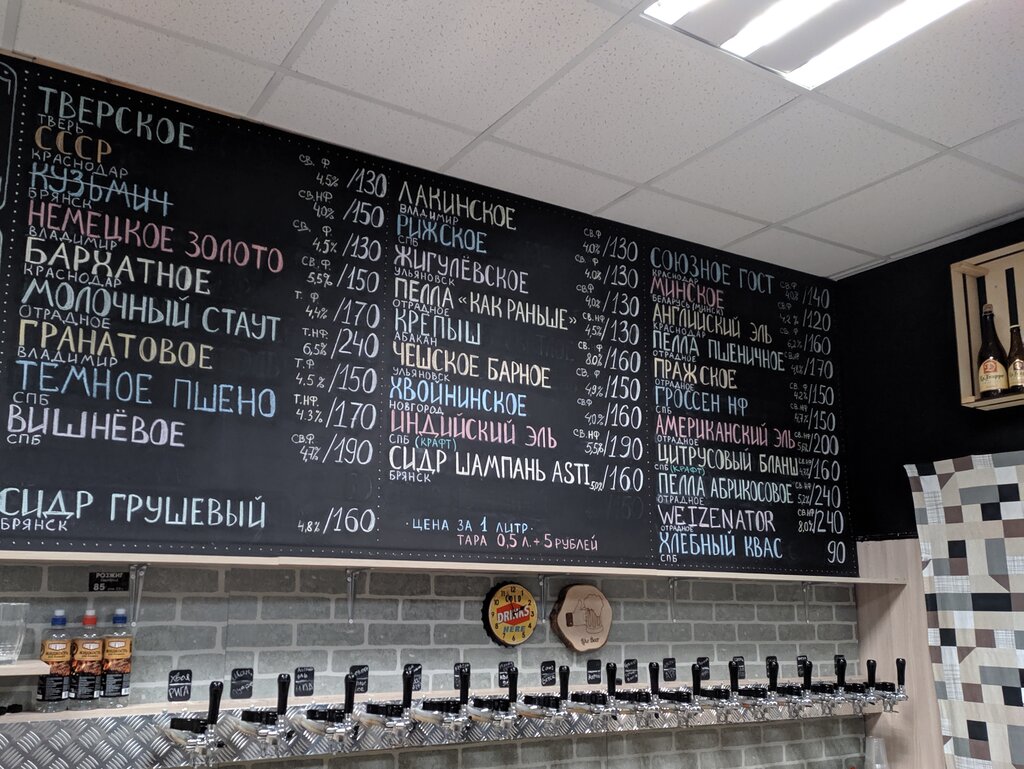 ТВЕРСКОЕ
ТВЕРЬ
СВ. Ф
4,5% /130
СССР
КРАСНОДАР
СВ.НФ
4,0% /150
КУЗЬМИЧ
БРЯНСК
СВ. Ф
4,5% /130
НЕМЕЦКОЕ ЗОЛОТО
ВЛАДИМИР
СВ. Ф
5,5% /150
БАРХАТНОЕ
КРАСНОДАР
Т. Ф
4,4% /170
МОЛОЧНЫЙ СТАУТ
ОТРАДНОЕ
Т.НФ
6,5% /240
ГРАНАТОВОЕ
ВЛАДИМИР
Т.Ф
4.5% /150
ТЕМНОЕ ПШЕНО
СПБ
Т.НФ.
4.3% /170
ВИШНЁВОЕ
СПБ
СВ.Ф
4,7% /190
СИДР ГРУШЕВЫЙ
БРЯНСК
4,8% /160
ЛАКИНСКОЕ
ВЛАДИМИР
СВ.Ф
4.0% /130
РИЖСКОЕ
СПБ
СВ. Ф
4.0% /130
ЖИГУЛЁВСКОЕ
УЛЬЯНОВСК
СВ. Ф
4,0% /130
ПЕЛЛА «КАК РАНЬШЕ»
ОТРАДНОЕ
СВ.НФ
4,5% /130
КРЕПЫШ
АБАКАН
СВ.НФ
8.0% /160
ЧЕШСКОЕ БАРНОЕ
УЛЬЯНОВСК
СВ. Ф
4,9% /150
ХВОЙНИНСКОЕ
НОВГОРОД
СВ.Ф
4,0% /160
ИНДИЙСКИЙ ЭЛЬ
СПБ (КРАФТ)
СВ.НФ
5,5% /190
СИДР ШАМПАНЬ ASTI
БРЯНСК
5,0% /160
· ЦЕНА ЗА 1 ЛИТР ·
ТАРА 0,5 Л. + 5 РУБЛЕЙ
СОЮЗНОЕ ГОСТ
КРАСНОДАР
/140
МИНСКОЕ
БЕЛАРУСЬ (МИНСК)
/120
АНГЛИЙСКИЙ ЭЛЬ
КРАСНОДАР
/160
ПЕЛЛА ПШЕНИЧНОЕ
ОТРАДНОЕ
/170
ПРАЖСКОЕ
ОТРАДНОЕ
/150
ГРОССЕН НФ
СПБ
/150
АМЕРИКАНСКИЙ ЭЛЬ
ОТРАДНОЕ
/200
ЦИТРУСОВЫЙ БЛАНШ
СПБ (КРАФТ)
/160
ПЕЛЛА АБРИКОСОВОЕ
ОТРАДНОЕ
/240
WEIZENATOR
ОТРАДНОЕ
8.0% /240
ХЛЕБНЫЙ КВАС
СПБ
90
РОЗЖИГ
85
COLD
DRINKS
HERE